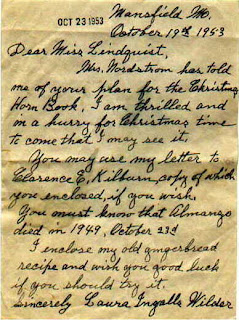 Mansfield Mo.
OCT 23 1953
October 19th 1953
Dear Miss Lindquist,
Mrs. Nordstrom has told
me of your plan for the Christmas
Horn Book. I am thrilled and
in a hurry for Christmas time
to come that I may see it.
You may use my letter to
Clarence E. Kilburn, copy of which
you enclosed, if you wish.
You must know that Almanzo
died in 1949, October 23d
I enclose my old gingerbread
recipe and wish you good luck
if you should try it.
Sincerely Laura Ingalls Wilder